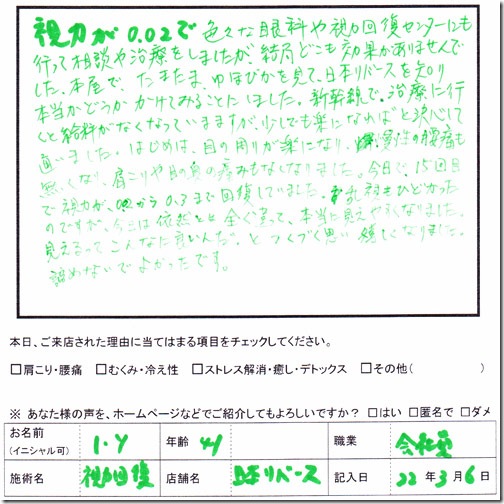 視力が0.02で色々な眼科や視力回復センターにも
行って相談や治療をしましたが、結局どこも効果がありませんで
した。本屋で、たまたま、ゆほびかを見て、日本リバースを知り
本当かどうかかけてみることにしました。新幹線で、治療に行
くと給料がなくなっていますますが、少しでも楽になればと決心して
通いました。はじめは、目の周りが楽になり、慢性の腰痛も
無くなり、肩こりや目の奥の痛みもなくなりました。今日で、15回目
で視力が、0.3まで回復していました。乱視もひどかった
のですが、今では依然と全く違って、本当に見えやすくなりました。
見えるってこんなに良いんだ。とつくづく思い嬉しくなりました。
諦めないでよかったです。
本日、ご来店された理由に当てはまる項目をチェックしてください。
□肩こり・腰痛 □むくみ・冷え性 □ストレス解消・癒し・デトックス □その他( )
※ あなた様の声を、ホームページなどでご紹介してもよろしいですか? □はい □匿名で □ダメ
お名前 (イニシャル可) I・Y 年齢 44 職業 会社員
施術名 視力回復 店舗名 日本リバース 記入日 22年3月6日